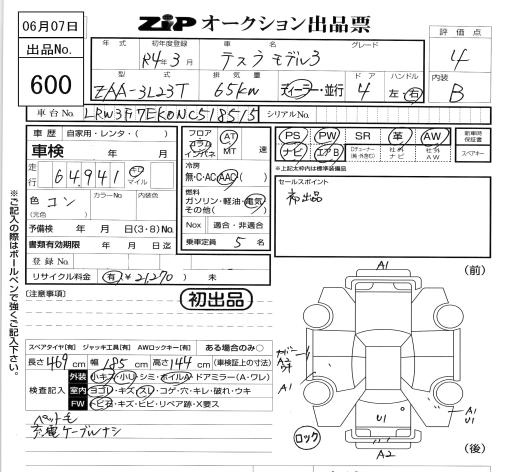 06月07日
ZiP オークション出品票
出品No.
600
評価点
4
内装
B
年式 初年度登録 車名 グレード
R4年3月 テスラモデル3
型式 排気量 ドア ハンドル
ZAA-3L23T 65kw ディーラー・並行 4 左・右
車台No. LRW3F7EK0NC518515 シリアルNo.
車歴 自家用・レンタ・( )
車検 年 月
走行 64,941 キロ マイル
色 コン カラーNo 内装色
(元色 )
予備検 年 月 日(3・8)No.
書類有効期限 年 月 日迄
登録No.
リサイクル料金 (有) ¥21,270) 未
フロア コラム インパネ AT MT 速
冷房
無・C・AC・AAC( )
燃料
ガソリン・軽油・電気
その他( )
Nox 適合・非適合
乗車定員 5 名
PS PW SR 革 AW 新車時保証書
ナビ エアB 社外ナビ 社外AW スペアキー
※上記太枠内は標準装備品
セールスポイント
初出品
※ご記入の際はボールペンで強くご記入下さい。
[注意事項]
初出品
スペアタイヤ[有] ジャッキ工具[有] AWロックキー[有] ある場合のみ○
長さ 469 cm 幅 185 cm 高さ 144 cm (車検証上の寸法)
検査記入
外装 小キズ・小U・シミ・ホイルA・ドアミラー(A・ワレ)
室内 ヨゴレ・キズ・スレ・コゲ・穴・キレ・破れ・ウキ
FW トビ石・キズ・ヒビ・リペア跡・X要ス
ペット毛
充電ケーブルナシ
A1
(前)
A1
U1
A1
U1
ロック
A2
(後)